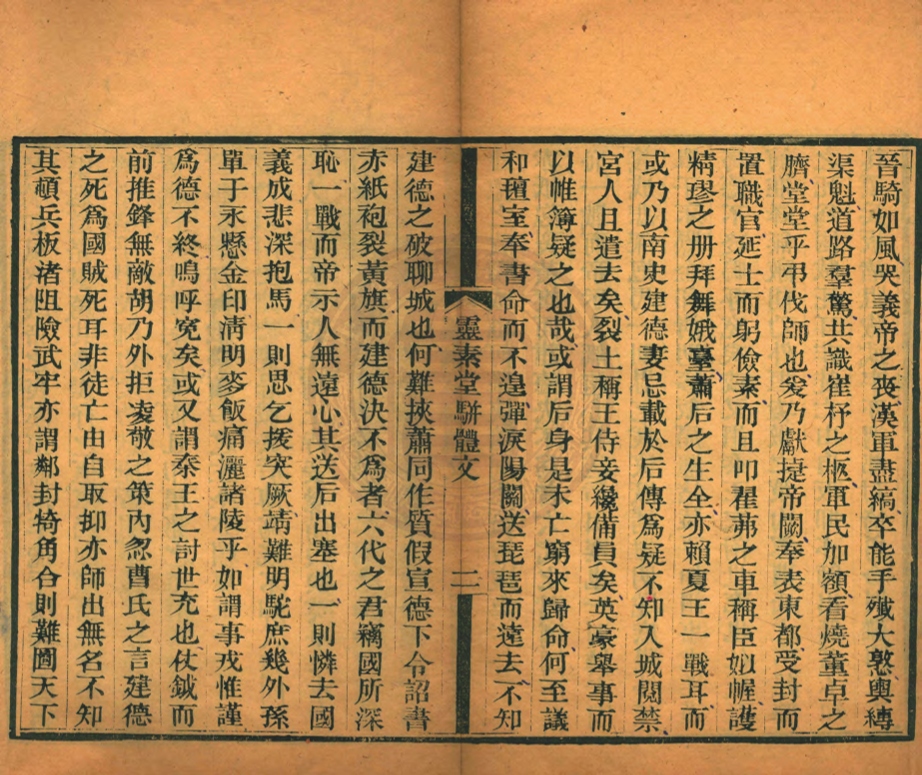 晉騎如風哭義帝之喪漢軍盡縞卒能手殲大憝輿縛
渠魁道路羣驚共識崔杼之柩軍民加額看燒董卓之
臍堂堂乎弔伐師也爰乃獻捷帝闕奉表東都受封而
置職官延士而躬儉素而且叩翟茀之車稱臣如幄護
精璆之册拜舞娥臺蕭后之生全亦賴夏王一戰耳而
或乃以南史建德妻忌載於后傳爲疑不知入城閱禁
宮人且遣去矣裂土稱王侍妾纔備員矣英豪舉事而
以帷簿疑之也哉或謂后身是未亡窮來歸命何至議
和璮室奉書命而不遑彈淚陽關送琵琶而遠去不知
靈素堂駢體文 二
建德之破聊城也何難挾蕭同作質假宣德下令詔書
赤紙袍裂黃旗而建德決不爲者六代之君竊國所深
恥一戰而帝示人無遠心其送后出塞也一則憐去國
義成悲深抱馬一則思乞援突厥靖難明駝庶幾外孫
單于永懸金印淸明麥飯痛灑諸陵乎如謂事戎惟謹
爲德不終嗚呼寃矣或又謂秦王之討世充也仗鉞而
前推鋒無敵胡乃外拒凌敬之策內忽曹氏之言建德
之死爲國賊死耳非徒亡由自取抑亦師出無名不知
其頓兵板渚阻險武牢亦謂鄰封犄角合則難圖天下